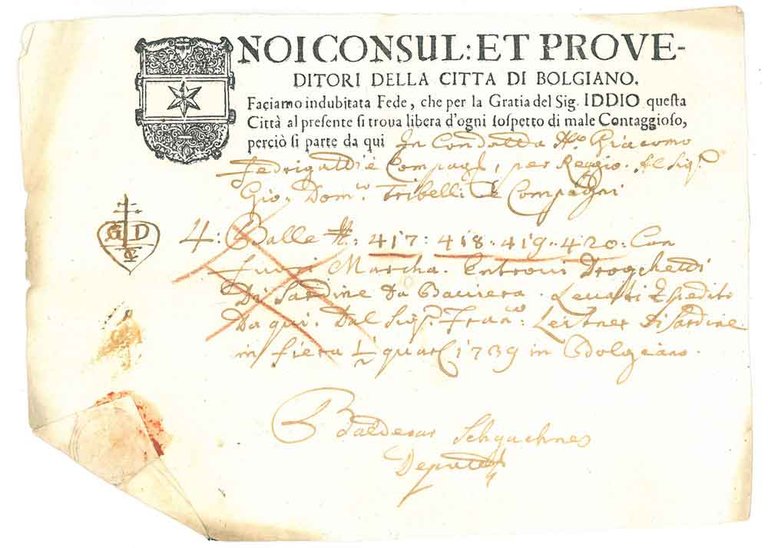 NOI CONSUL: ET PROVE-
DITORI DELLA CITTA DI BOLGIANO.
Faciamo indubitata Fede, che per la Gratia del Sig. IDDIO questa
Città al presente si troua libera d'ogni sospetto di male Contaggioso,
perciò si parte da qui In Condotta Giacomo
Compag, per Reggio. Al Sig.
Gio. Dom.co Tribelli è Compagni
G D
4: Balle #: 417: 418: 419: 420: Con
fuori Marcha. Entrovi Droghetti
Di Sardine Da Baviera. Levatti Espedito
Da qui. Dal Sig. Fran.co Leitner Di Sardine
in fiera 1739 in Bolgiano.
Balderar
Deputato